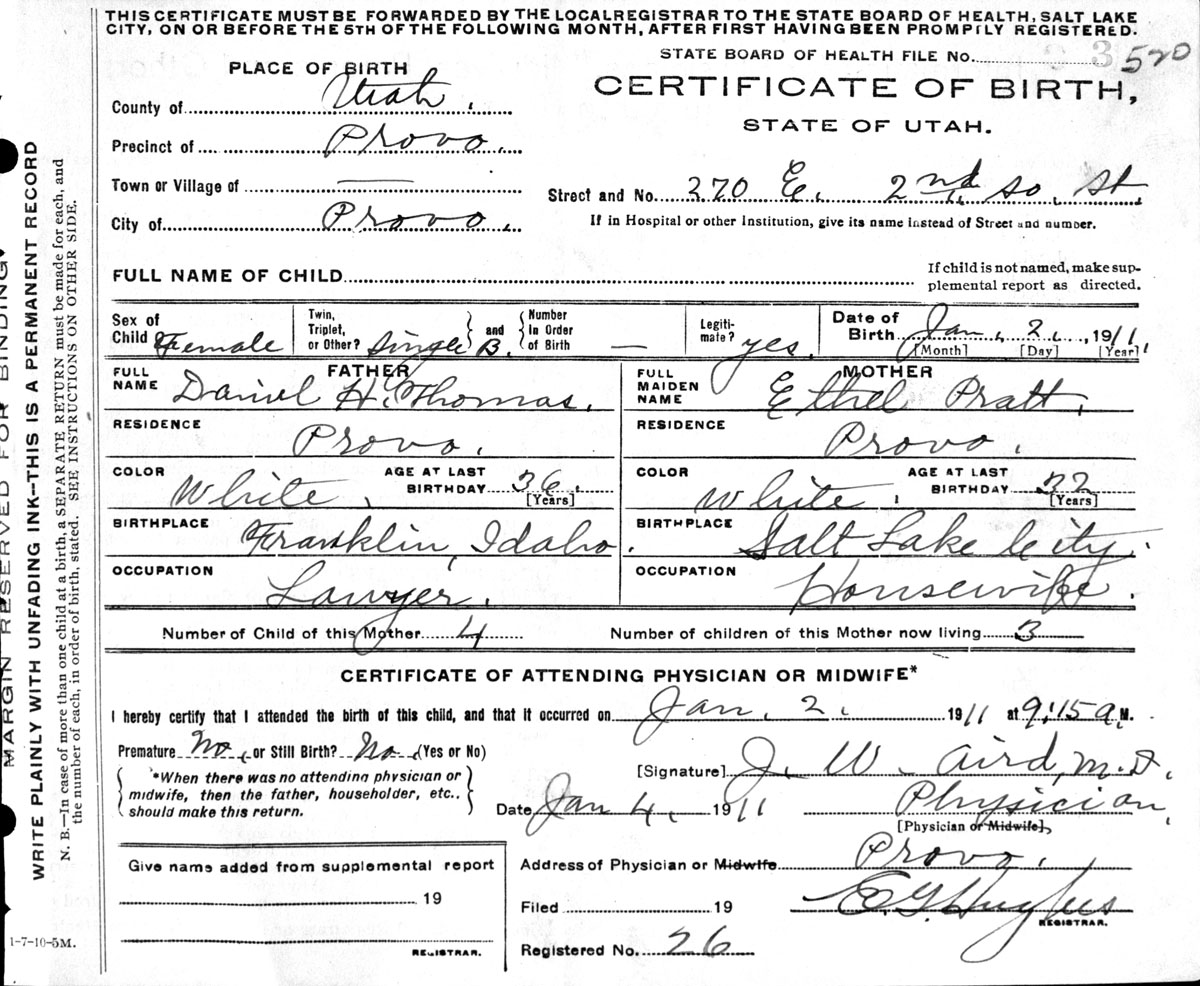 THIS CERTIFICATE MUST BE FORWARDED BY THE LOCAL REGISTRAR TO THE STATE BOARD OF HEALTH, SALT LAKE
CITY, ON OR BEFORE THE 5TH OF THE FOLLOWING MONTH, AFTER FIRST HAVING BEEN PROMPTLY REGISTERED.
STATE BOARD OF HEALTH FILE No. 3 520
PLACE OF BIRTH
CERTIFICATE OF BIRTH,
STATE OF UTAH.
County of Utah.
Precinct of Provo.
Town or Village of —
Street and No. 370 E. 2nd So. St.
City of Provo.
If in Hospital or other Institution, give its name instead of Street and number.
FULL NAME OF CHILD
If child is not named, make sup-
plemental report as directed.
Sex of Child Female
Twin, Triplet, or Other? Single B. and Number In Order of Birth —
Legiti-mate? yes.
Date of Birth Jan. 2, 1911
[Month] [Day] [Year]
FATHER
FULL NAME Daniel H. Thomas.
MOTHER
FULL MAIDEN NAME Ethel Pratt.
RESIDENCE Provo.
RESIDENCE Provo.
COLOR White. AGE AT LAST BIRTHDAY 36. [Years]
COLOR White. AGE AT LAST BIRTHDAY 32 [Years]
BIRTHPLACE Franklin, Idaho.
BIRTHPLACE Salt Lake City.
OCCUPATION Lawyer.
OCCUPATION Housewife.
Number of Child of this Mother 4 Number of children of this Mother now living 3
CERTIFICATE OF ATTENDING PHYSICIAN OR MIDWIFE*
I hereby certify that I attended the birth of this child, and that it occurred on Jan. 2. 1911 at 9:15 a. M.
Premature No, or Still Birth? No. (Yes or No)
*When there was no attending physician or
midwife, then the father, householder, etc.,
should make this return.
[Signature] J. W. Aird, M.D.
Date Jan 4, 1911 Physician,
[Physician or Midwife],
Give name added from supplemental report
19
REGISTRAR.
Address of Physician or Midwife Provo.
Filed 19 E. G. Hughes
REGISTRAR.
Registered No. 26
MARGIN RESERVED FOR BINDING
WRITE PLAINLY WITH UNFADING INK—THIS IS A PERMANENT RECORD
N. B.—In case of more than one child at a birth, a SEPARATE RETURN must be made for each, and
the number of each, in order of birth, stated. SEE INSTRUCTIONS ON OTHER SIDE.
1-7-10-5M.